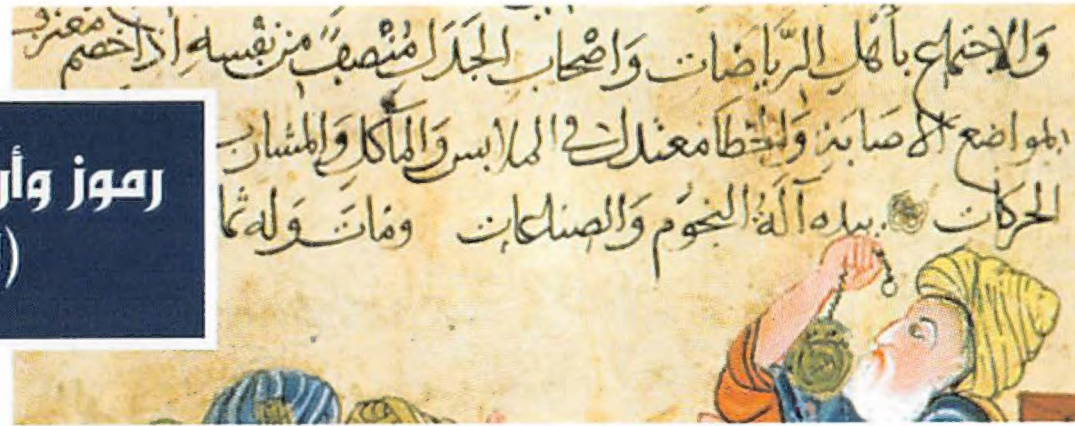 والاجتماع بأهل الرّياضات وَاصْحاب الجدَل مُنْصِفٌ من نفسه اذا خصم معترف
بمواضع الاصابة والخطا معتدل في الملابس وَالمأكل وَالمشارب
الحركات بيده آلَةُ النجوم وَالصناعات ومات وله ثما
رموز وأر
(